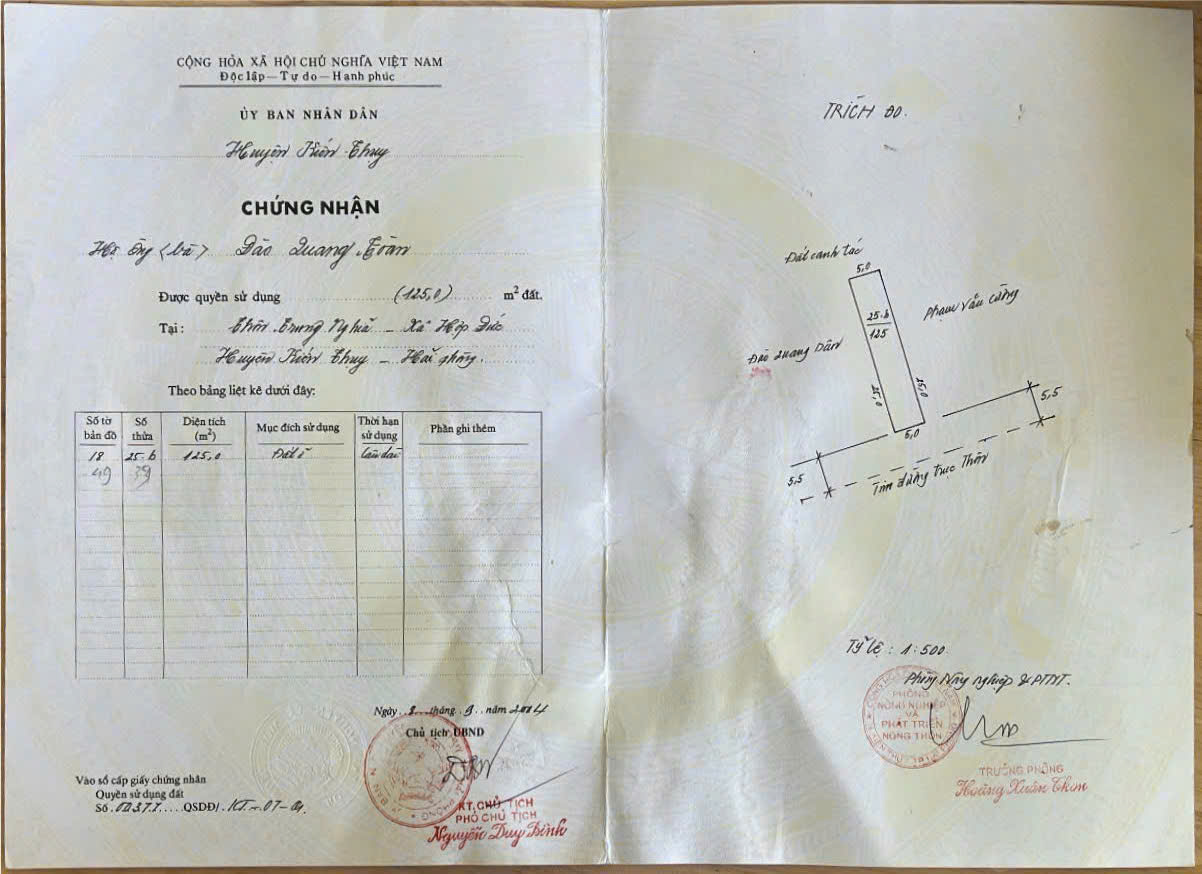 CỘNG HÒA XÃ HỘI CHỦ NGHĨA VIỆT NAM
Độc lập — Tự do — Hạnh phúc
ỦY BAN NHÂN DÂN
Huyện Kiến Thụy
CHỨNG NHẬN
Hộ ông (bà) Đào Quang
Được quyền sử dụng (125,0) m² đất.
Tại : Thôn Trung Nghĩa - Xã Hợp Đức
Huyện Kiến Thụy - Hải phòng.
Theo bảng liệt kê dưới đây:
Số tờ bản đồ Số thửa Diện tích (m²) Mục đích sử dụng Thời hạn sử dụng Phần ghi thêm
18 25-b 125,0 Đất ở Lâu dài
49 39
Ngày 2 tháng 9 năm 2004
Chủ tịch UBND
KT. CHỦ TỊCH
PHÓ CHỦ TỊCH
Nguyễn Duy Bình
Vào sổ cấp giấy chứng nhận
Quyền sử dụng đất
Số QSDĐ/
TRÍCH ĐO.
Đất canh tác
5,0
Phạm Văn Cường
25-b
125
Đào Quang Dân
25,0
25,0
5,0
5,5
5,5
Tim đường trục Thôn
Tỷ lệ : 1:500
Phòng Nông nghiệp & PTNT.
PHÒNG
NÔNG NGHIỆP
VÀ
PHÁT TRIỂN
NÔNG THÔN
TRƯỞNG PHÒNG
Hoàng Xuân Thơm